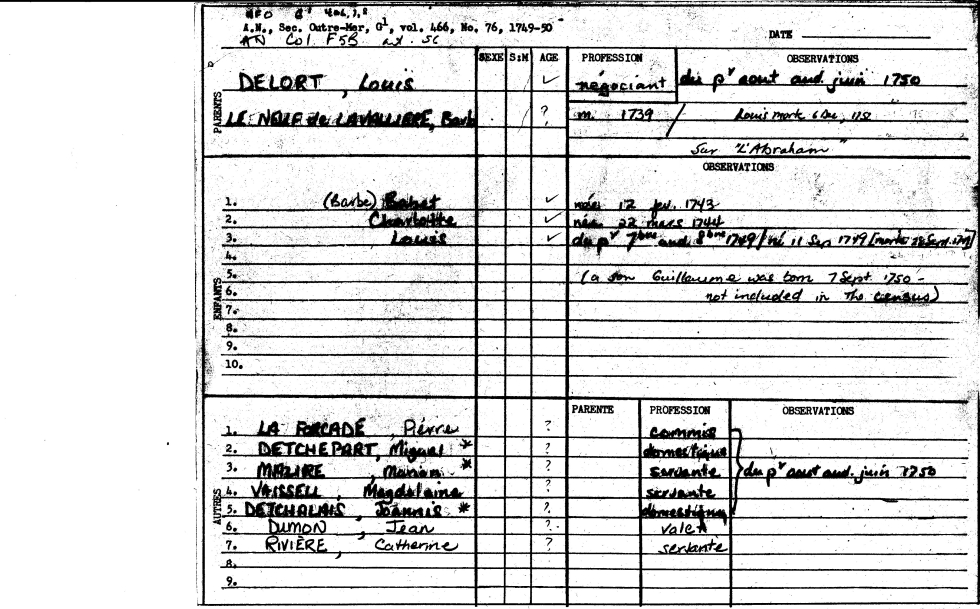 A.N., Sec. Outre-Mer, G1, vol. 466, No. 76, 1749-50
AN Col F5B art. 5C
DATE
SEXE S:M AGE PROFESSION OBSERVATIONS
PARENTS
DELORT, Louis ✓ négociant du pr aout aud. juin 1750
LE NEUF de LAVALLIERE, Barb ? m. 1739 / Louis mort 6 Dec,
Sur "L'Abraham"
OBSERVATIONS
ENFANTS
1. (Barbe) Babet ✓ née 12 jv. 1743
2. Charlotte ✓ née 22 mars 1744
3. Louis ✓ du pr 7bre aud 8bre 1749 / né 11 Sep 1749 [mort 28 Sept. 1749]
4.
5. (a son Guillaume was born 7 Sept. 1750 -
6. not included in the census)
7.
8.
9.
10.
PARENTE PROFESSION OBSERVATIONS
AUTRES
1. LA FORCADE, Pierre ? commis
2. DETCHEPART, Miguel * ? domestique
3. MAZIRE, Mariam * ? servante du pr aout aud. juin 1750
4. VAISSELL, Magdelaine ? servante
5. DETCHALAIS, Joannis * ? domestique
6. DUMON, Jean ? valet
7. RIVIÈRE, Catherine ? servante
8.
9.